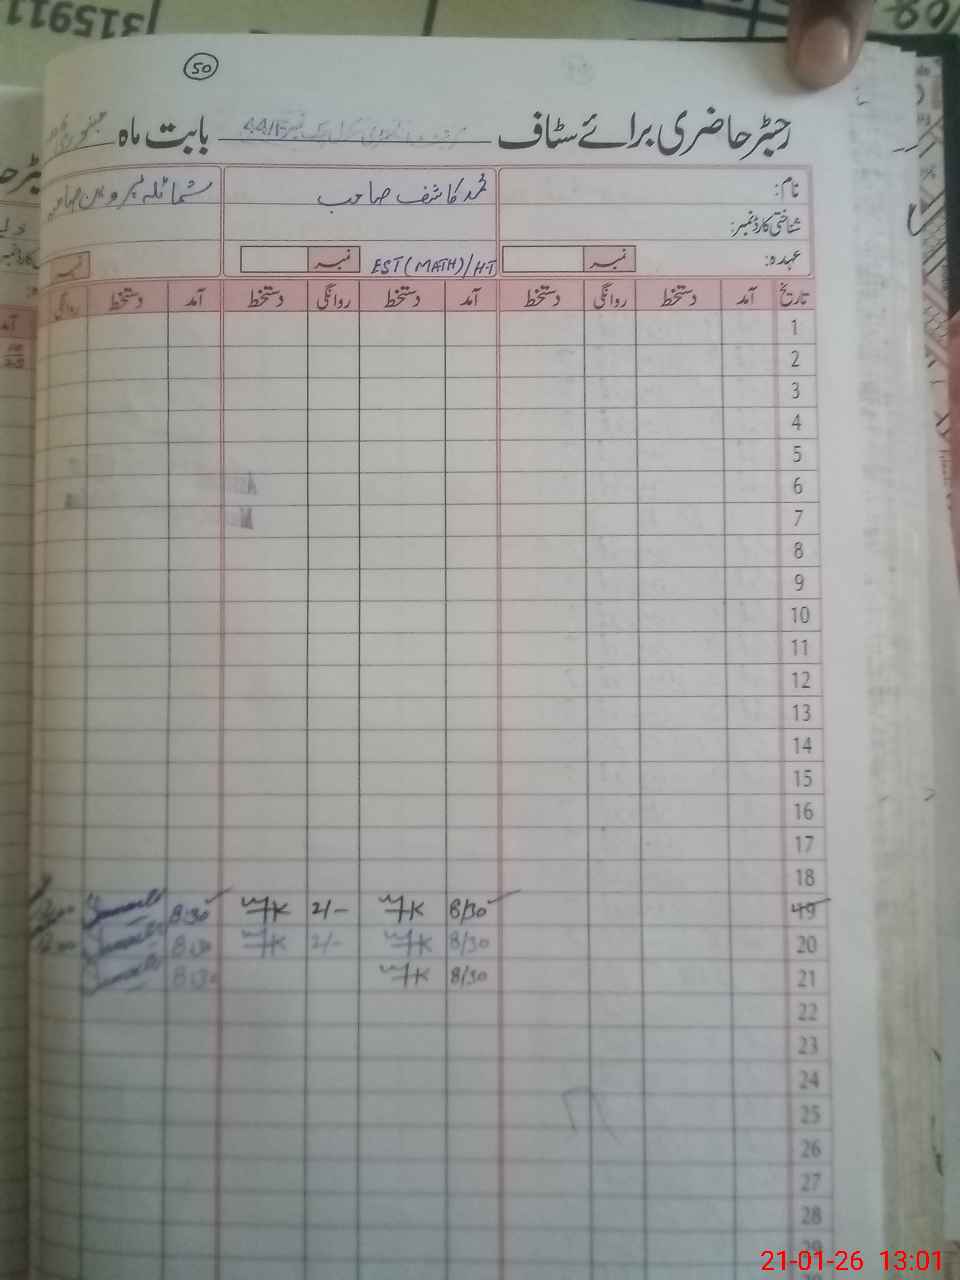 315911
50
رجسٹر حاضری برائے سٹاف 44/15 بابت ماہ
نام: محمد کاشف صاحب شمائلہ
شناختی کارڈ نمبر:
عہدہ: نمبر EST (MATH)/HT نمبر نمبر
تاریخ آمد دستخط روانگی دستخط آمد دستخط روانگی دستخط آمد دستخط روانگی
1
2
3
4
5
6
7
8
9
10
11
12
13
14
15
16
17
18
19 8/30 MK 2/- MK 8:30
20 8/30 MK 2/- MK 8:30
21 8/30 MK 8:30
22
23
24
25
26
27
28
29
21-01-26 13:01